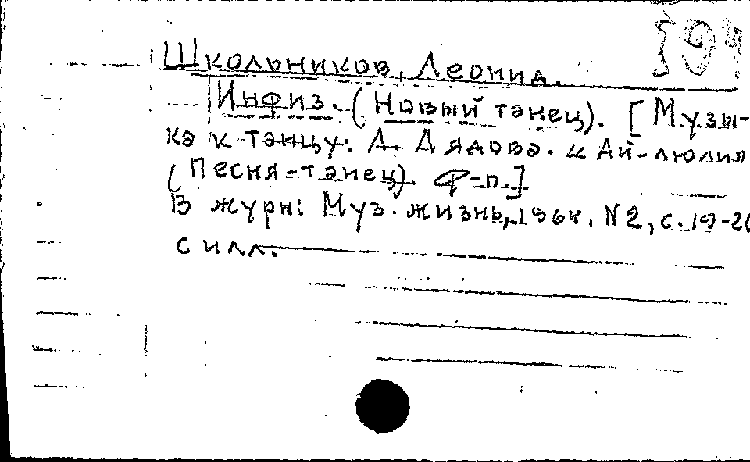 Школьников, Леонид.
Инфиз. (Новый танец). [Музы-
ка к танцу: А. Дядова. "Ай-люлия
(Песня-танец). Ф-п.]
В журн: Муз. жизнь, 1964, N2, с. 19-20
с илл.